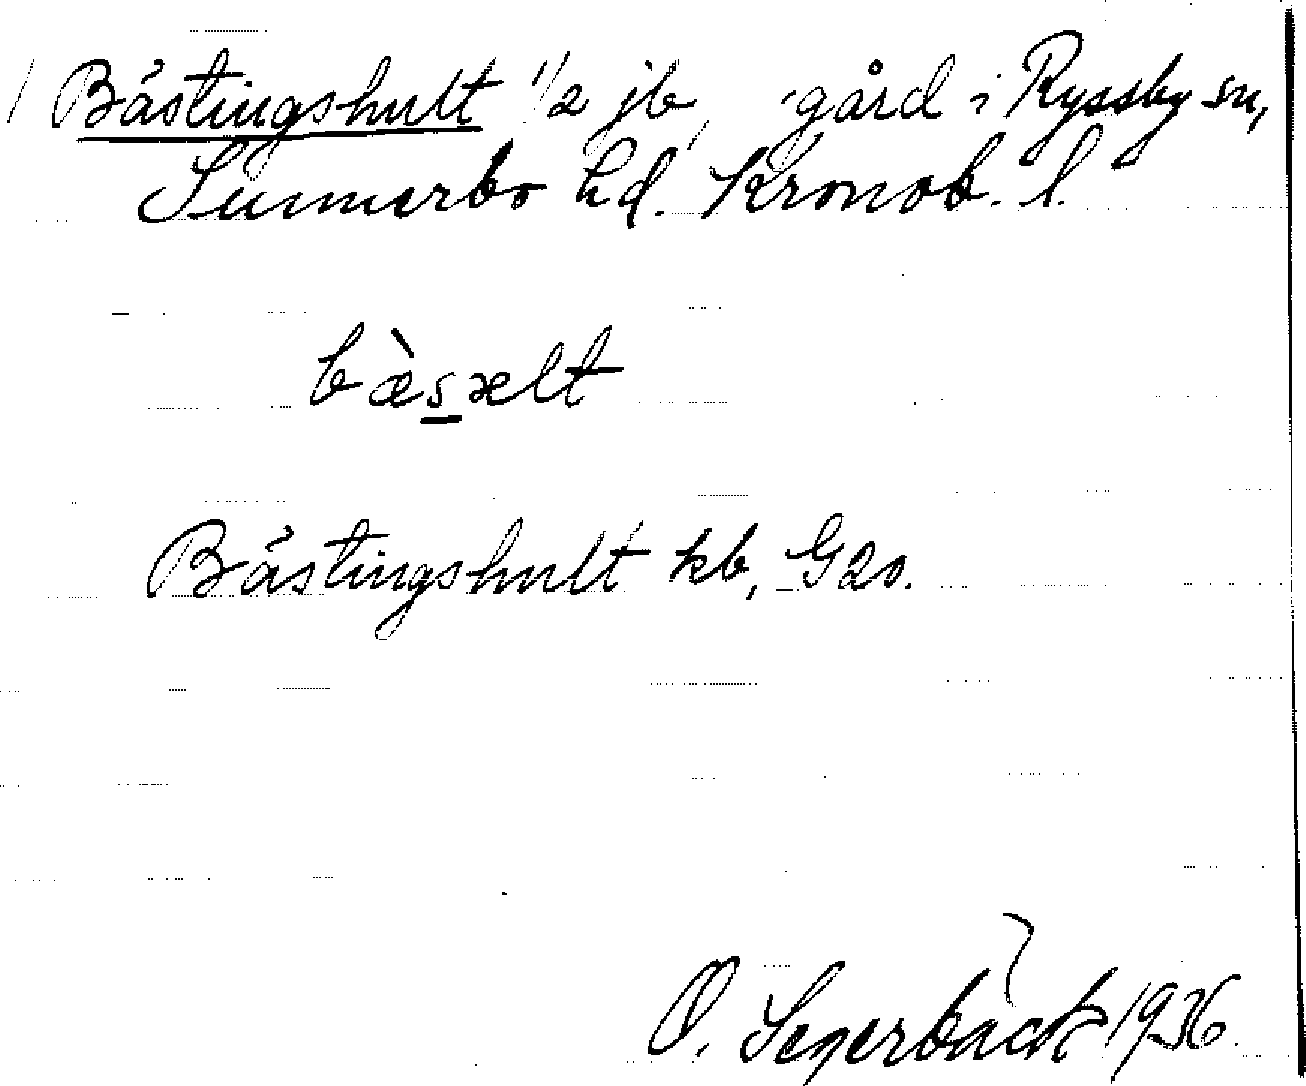 Bästingshult 1/2 jb, gård i Ryssby sn,
Sunnerbo hd. Kronob. l.
bæ̀s̲ælt
Bästingshult kb, G20.
O. Segerbäck 1936.